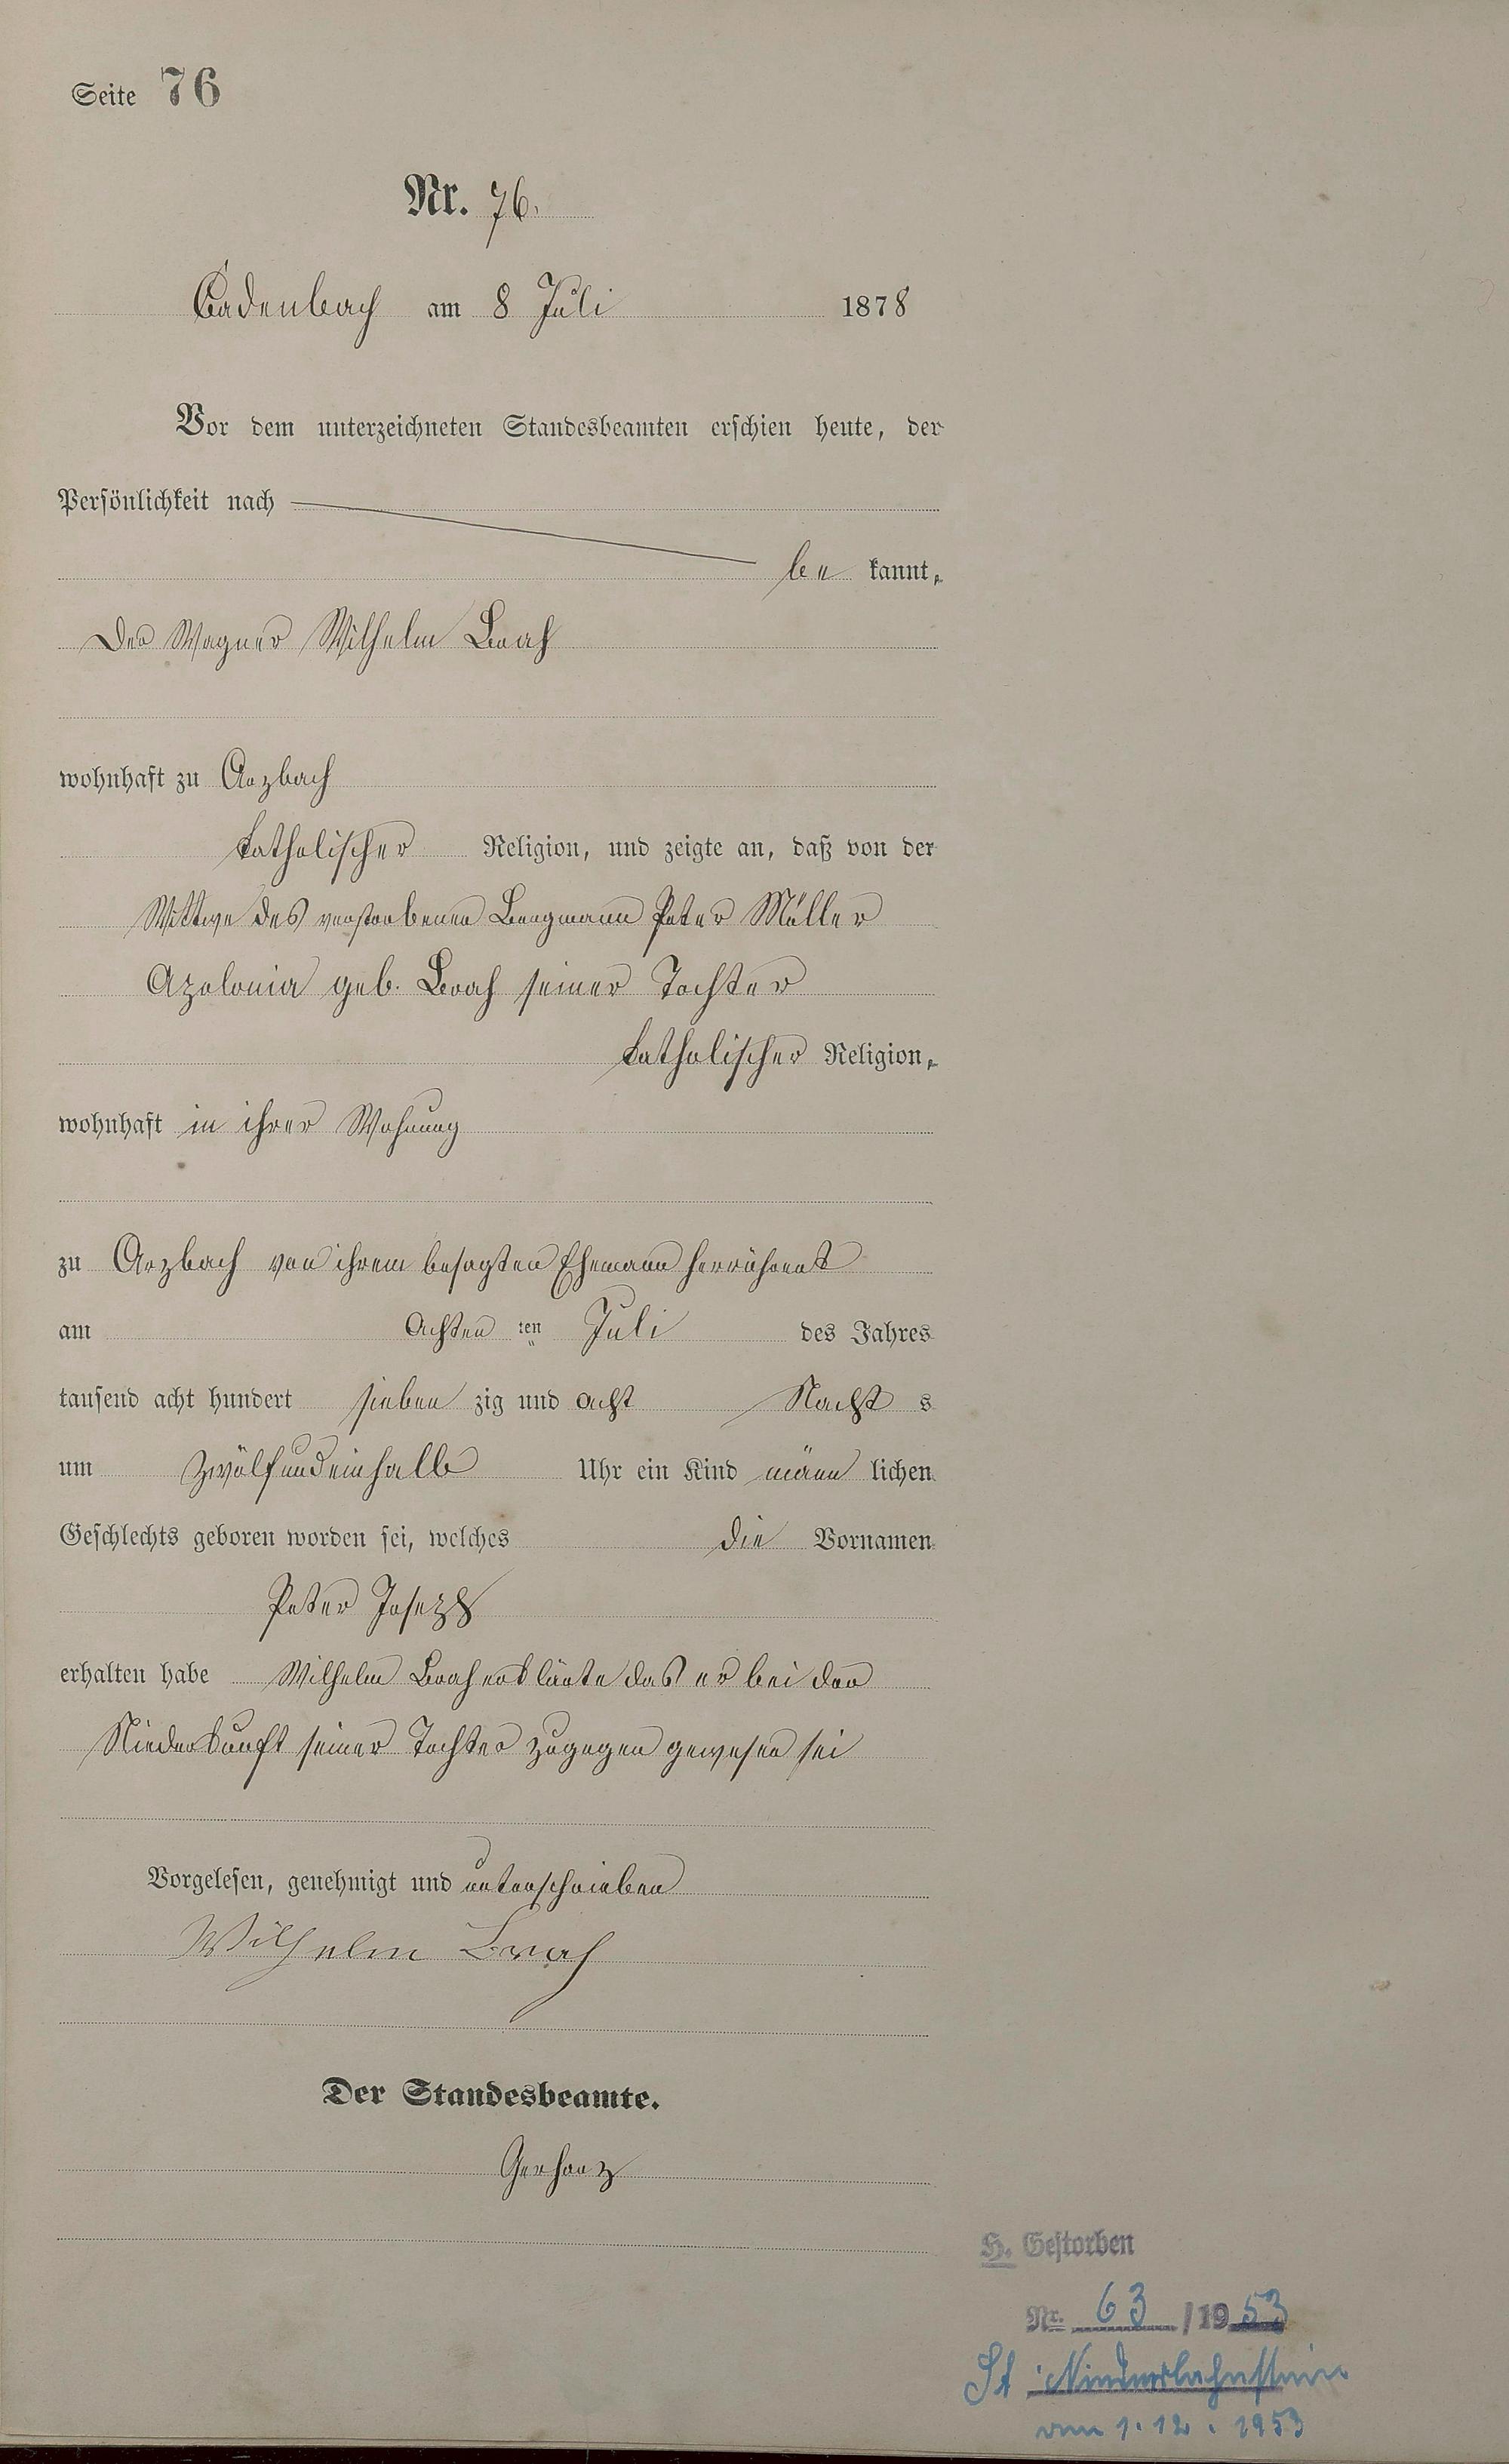 Seite 76
Nr. 76.
Cadenbach am 8 Juli 1878
Vor dem unterzeichneten Standesbeamten erschien heute, der
Persönlichkeit nach
be kannt,
Der Wagner Wilhelm Brah
wohnhaft zu Arzbach
katholischer Religion, und zeigte an, daß von der
Wittwe des verstorbenen Bergmann Peter Müller
Apolonia geb. Brah seiner Tochter
katholischer Religion,
wohnhaft in ihrer Wohnung
zu Arzbach von ihrem besagten Ehemann herrührent
am Achten ten Juli des Jahres
tausend acht hundert sieben zig und acht Nacht s
um zwölfundeinhalb Uhr ein Kind männ lichen
Geschlechts geboren worden sei, welches die Vornamen
Peter Joseph
erhalten habe Wilhelm Brah erklärte das er bei der
Niederkunft seiner Tochter zugegen gewesen sei
Vorgelesen, genehmigt und unterschrieben
Wilhelm Brah
Der Standesbeamte.
Gerharz
H. Gestorben
Nr. 63 /1953
St. Niederlahnstein
vom 1.12.1953